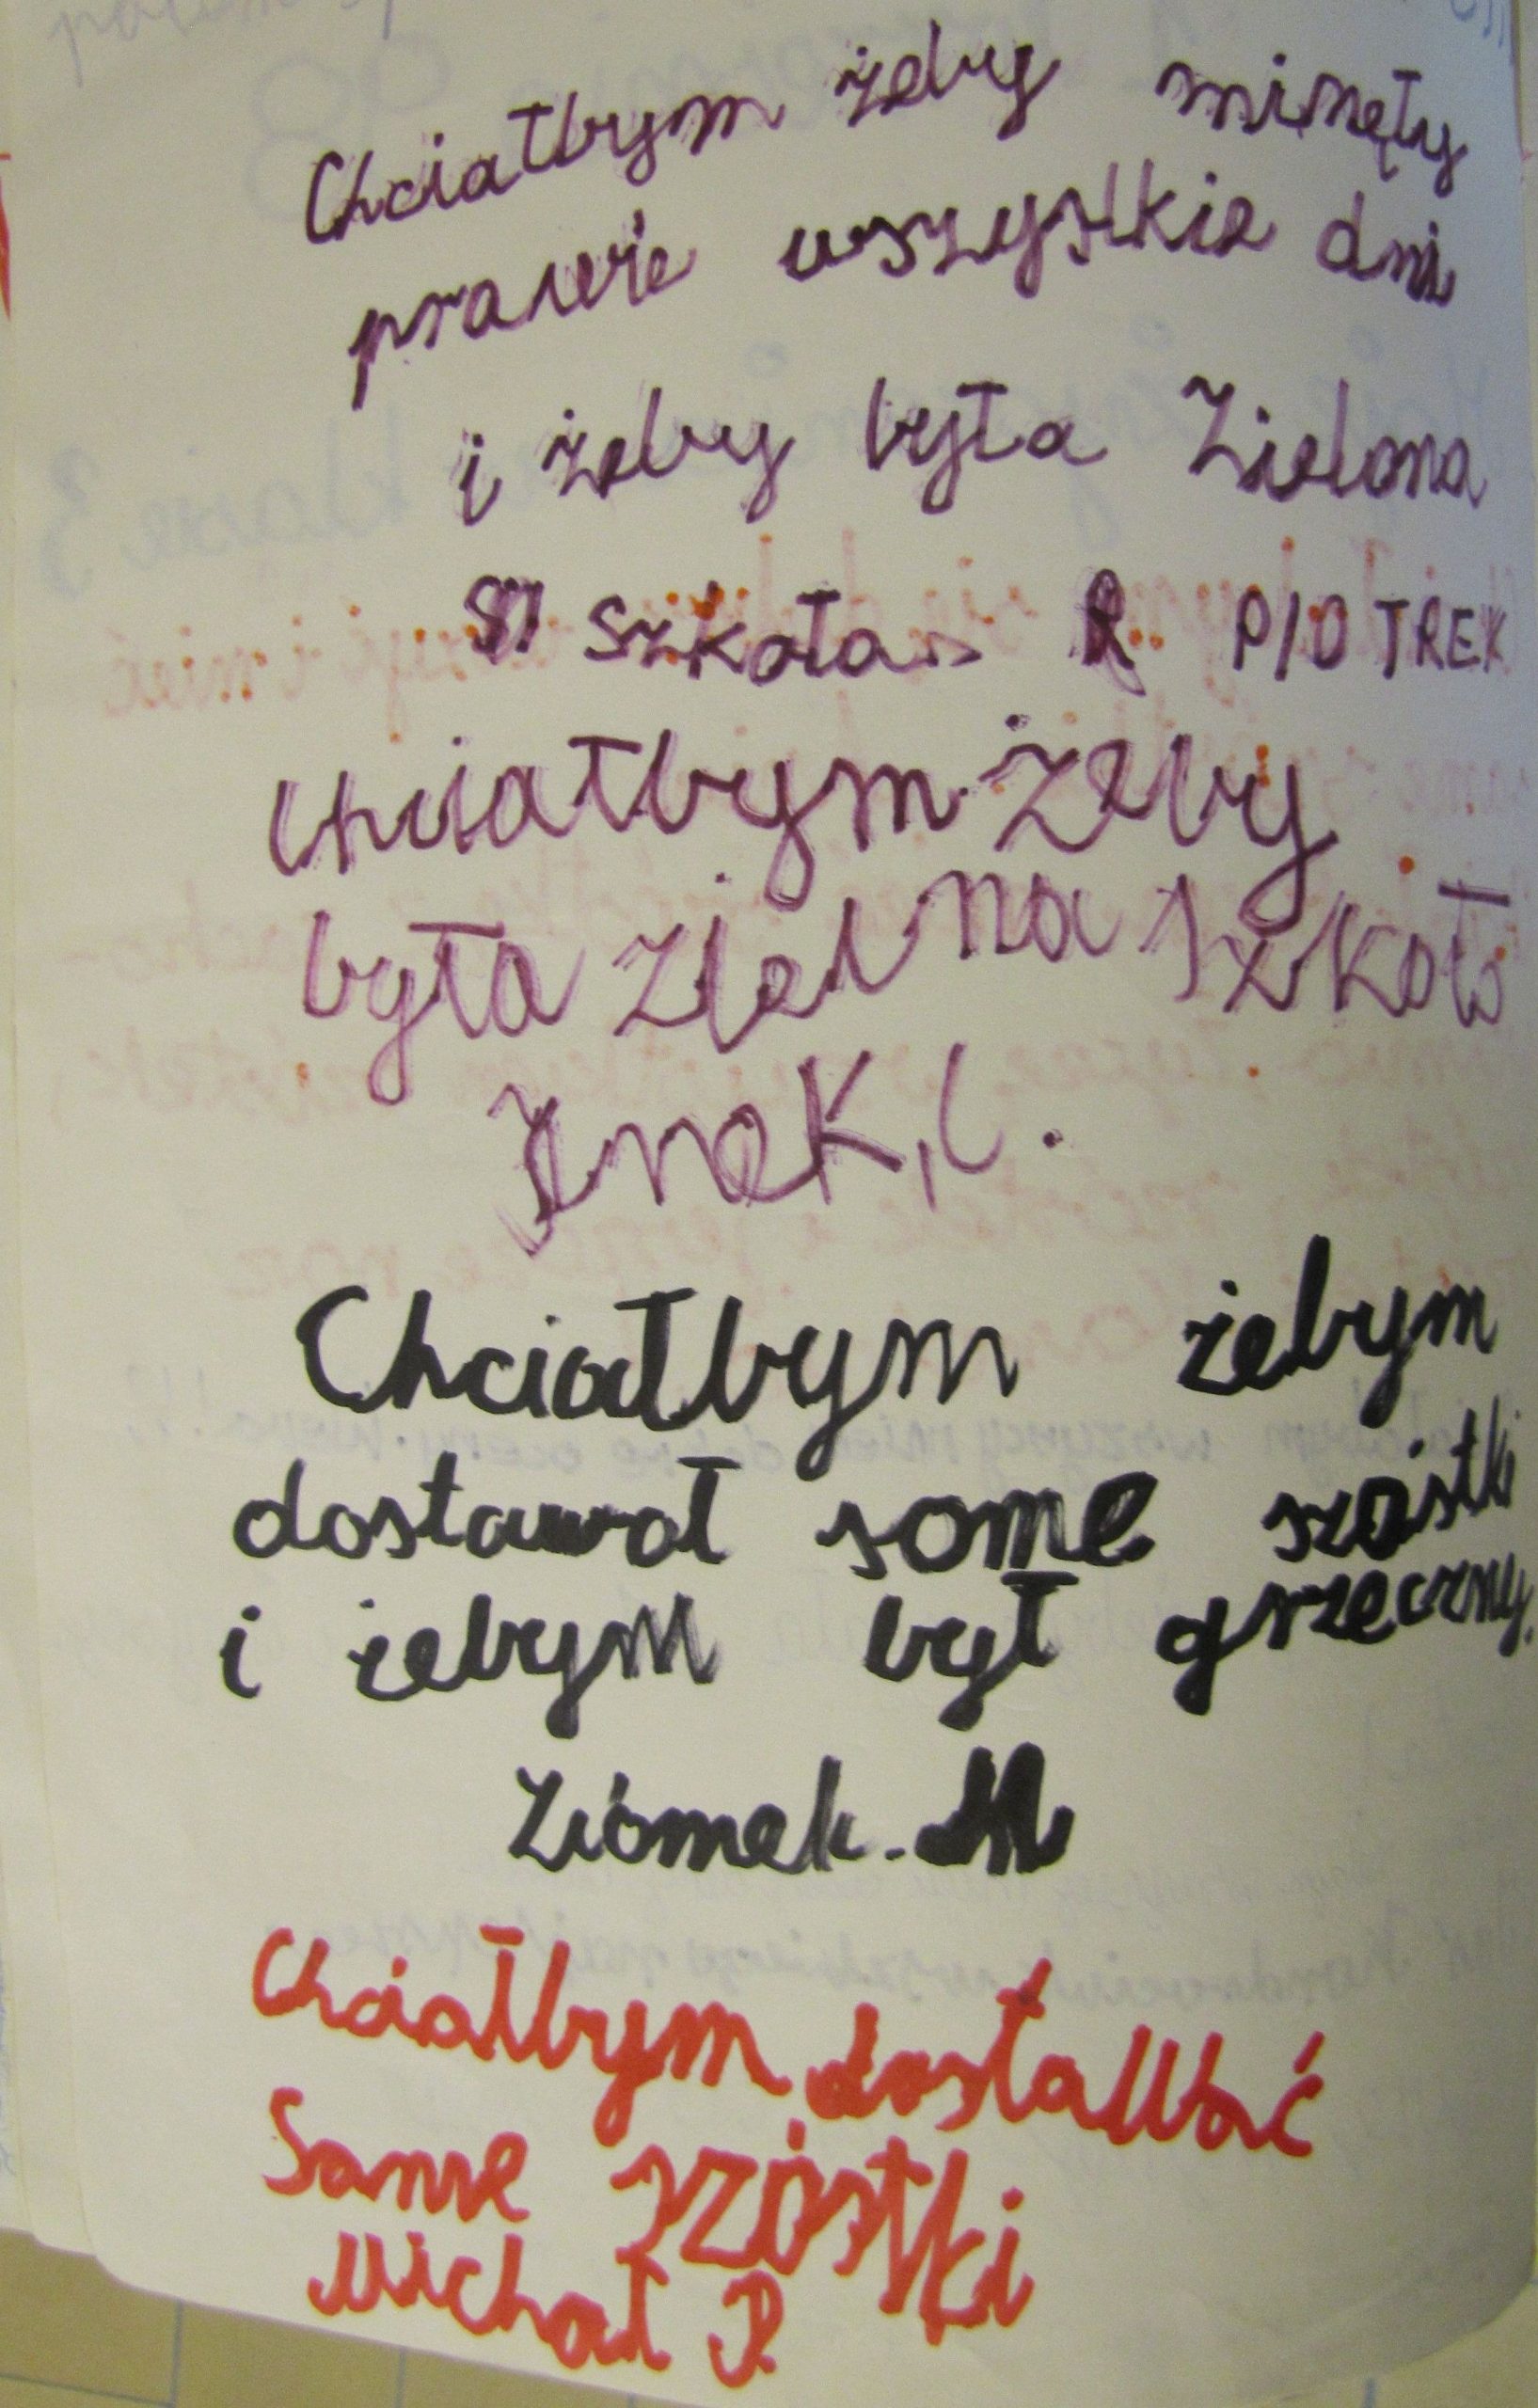 Chciałbym żeby minęły
prawie wszystkie dni
i żeby była Zielona
szkoła R PIOTREK
chciałbym żeby
była Zielona szkoła
Chciałbym żebym
dostawał same szóstki
i żebym był grzeczny.
Ziomek. M
Chciałbym dostawać
Same szóstki
Michał P.